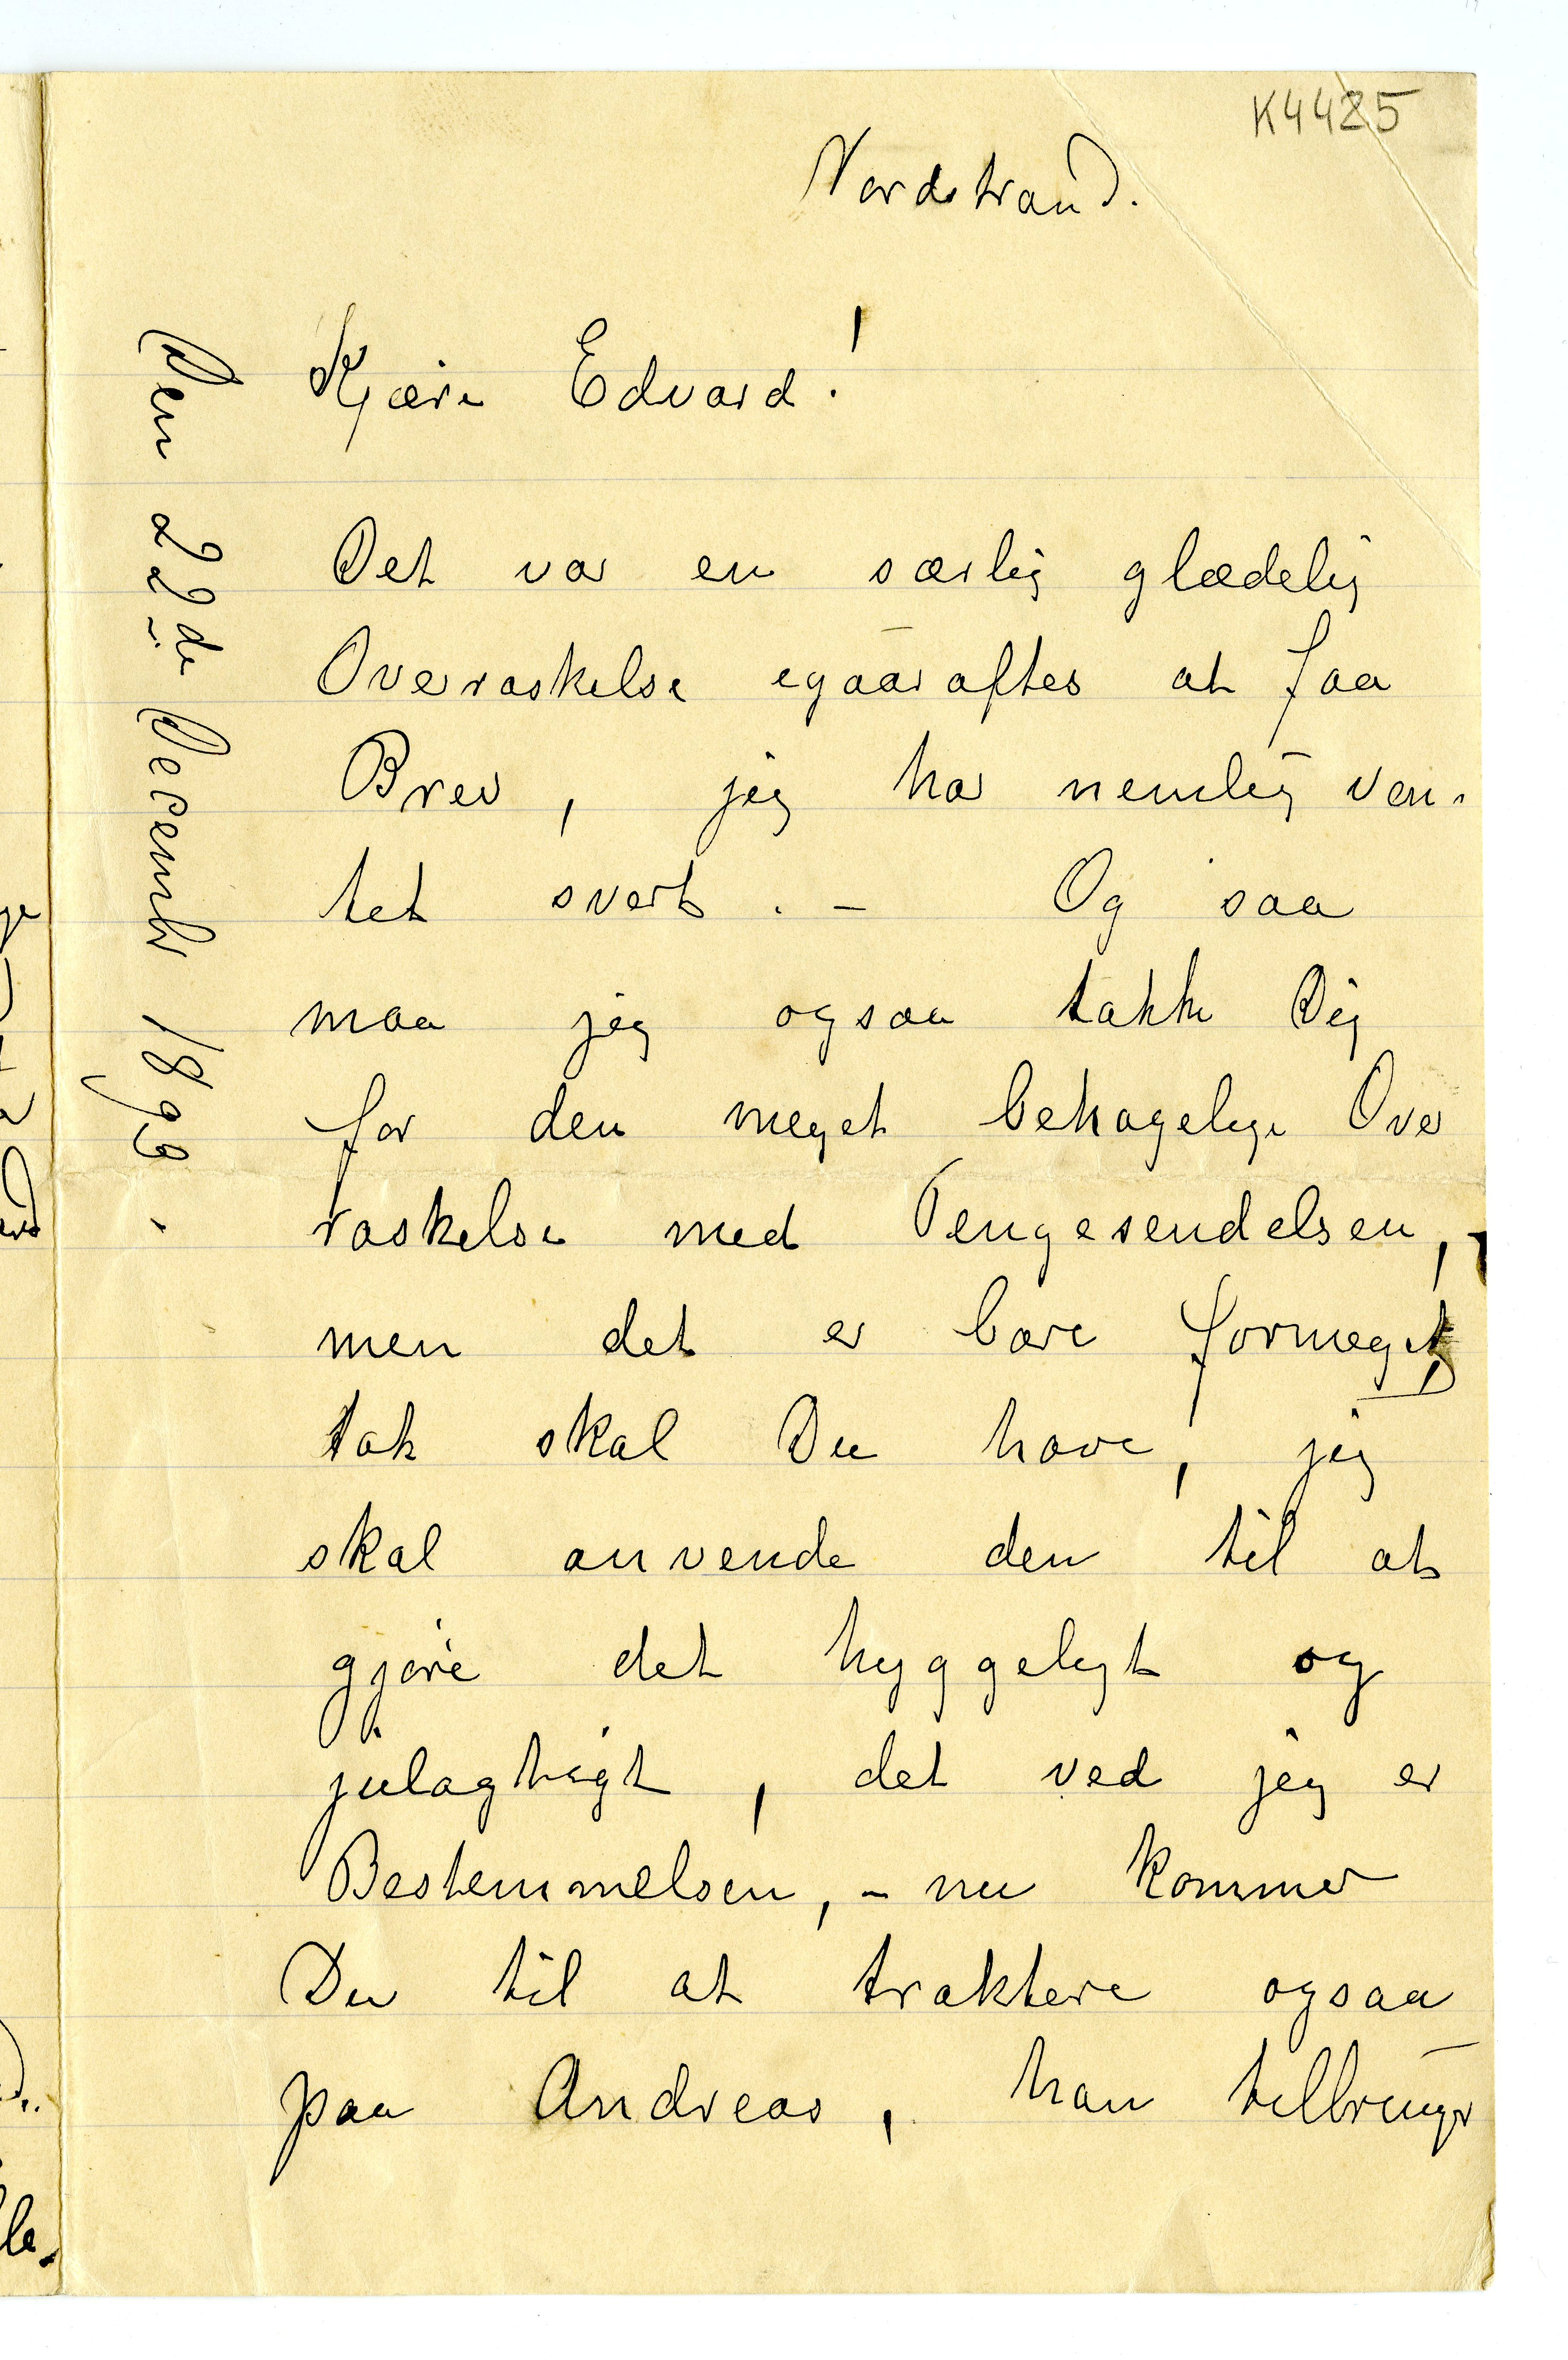 K4425
Nordstrand.
Den 22de December 1893.
Kjære Edvard!
Det var en særlig glædelig
Overraskelse egaaraftes at faa
Brev, jeg har nemlig ven-
tet svert. – Og saa
maa jeg ogsaa takke Dig
for den meget behagelige Over
raskelse med Pengesendelsen,
men det er bare formeget,
tak skal Du have, jeg
skal anvende den til at
gjøre det hyggeligt og
julagtigt, det ved jeg er
Bestemmelsen, – nu kommer
Du til at traktere ogsaa
paa Andreas, han tilbringer